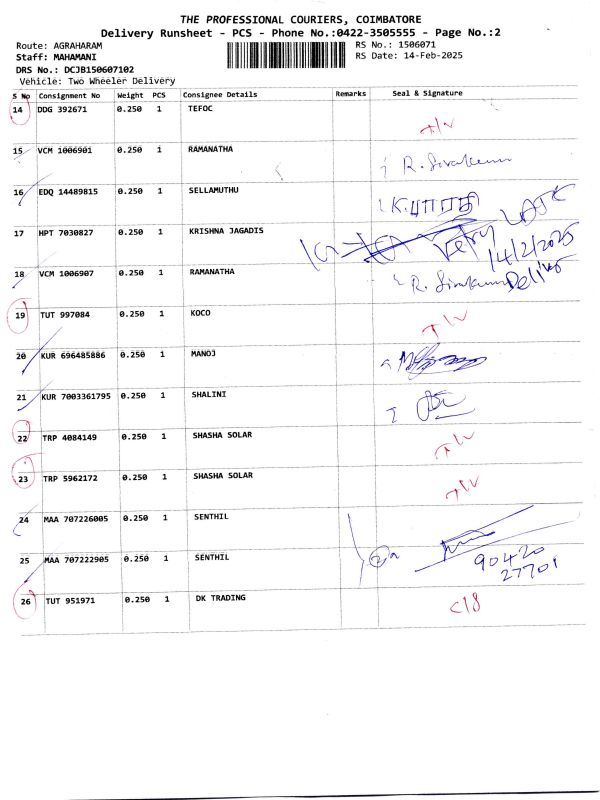 THE PROFESSIONAL COURIERS, COIMBATORE
Delivery Runsheet - PCS - Phone No.:0422-3505555 - Page No.:2
Route: AGRAHARAM
Staff: MAHAMANI
DRS No.: DCJB150607102
Vehicle: Two Wheeler Delivery
RS No.: 1506071
RS Date: 14-Feb-2025
S No Consignment No Weight PCS Consignee Details Remarks Seal & Signature
14 DDG 392671 0.250 1 TEFOC
15 VCM 1006901 0.250 1 RAMANATHA R. Sivakumar
16 EDQ 14489815 0.250 1 SELLAMUTHU
17 HPT 7030827 0.250 1 KRISHNA JAGADIS Very LATE
14/2/2025
18 VCM 1006907 0.250 1 RAMANATHA R. Sivakumar
19 TUT 997084 0.250 1 KOCO
20 KUR 696485886 0.250 1 MANOJ
21 KUR 7003361795 0.250 1 SHALINI
22 TRP 4084149 0.250 1 SHASHA SOLAR
23 TRP 5962172 0.250 1 SHASHA SOLAR
24 MAA 707226005 0.250 1 SENTHIL
25 MAA 707222905 0.250 1 SENTHIL 90420
27701
26 TUT 951971 0.250 1 DK TRADING